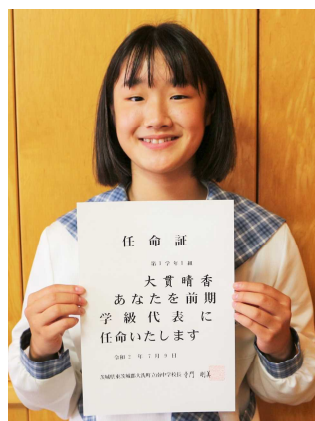 任命証
第1学年1組
大貫晴香
あなたを前期
学級代表に
任命いたします
令和2年7月9日
茨城県東茨城郡大洗町立南中学校長